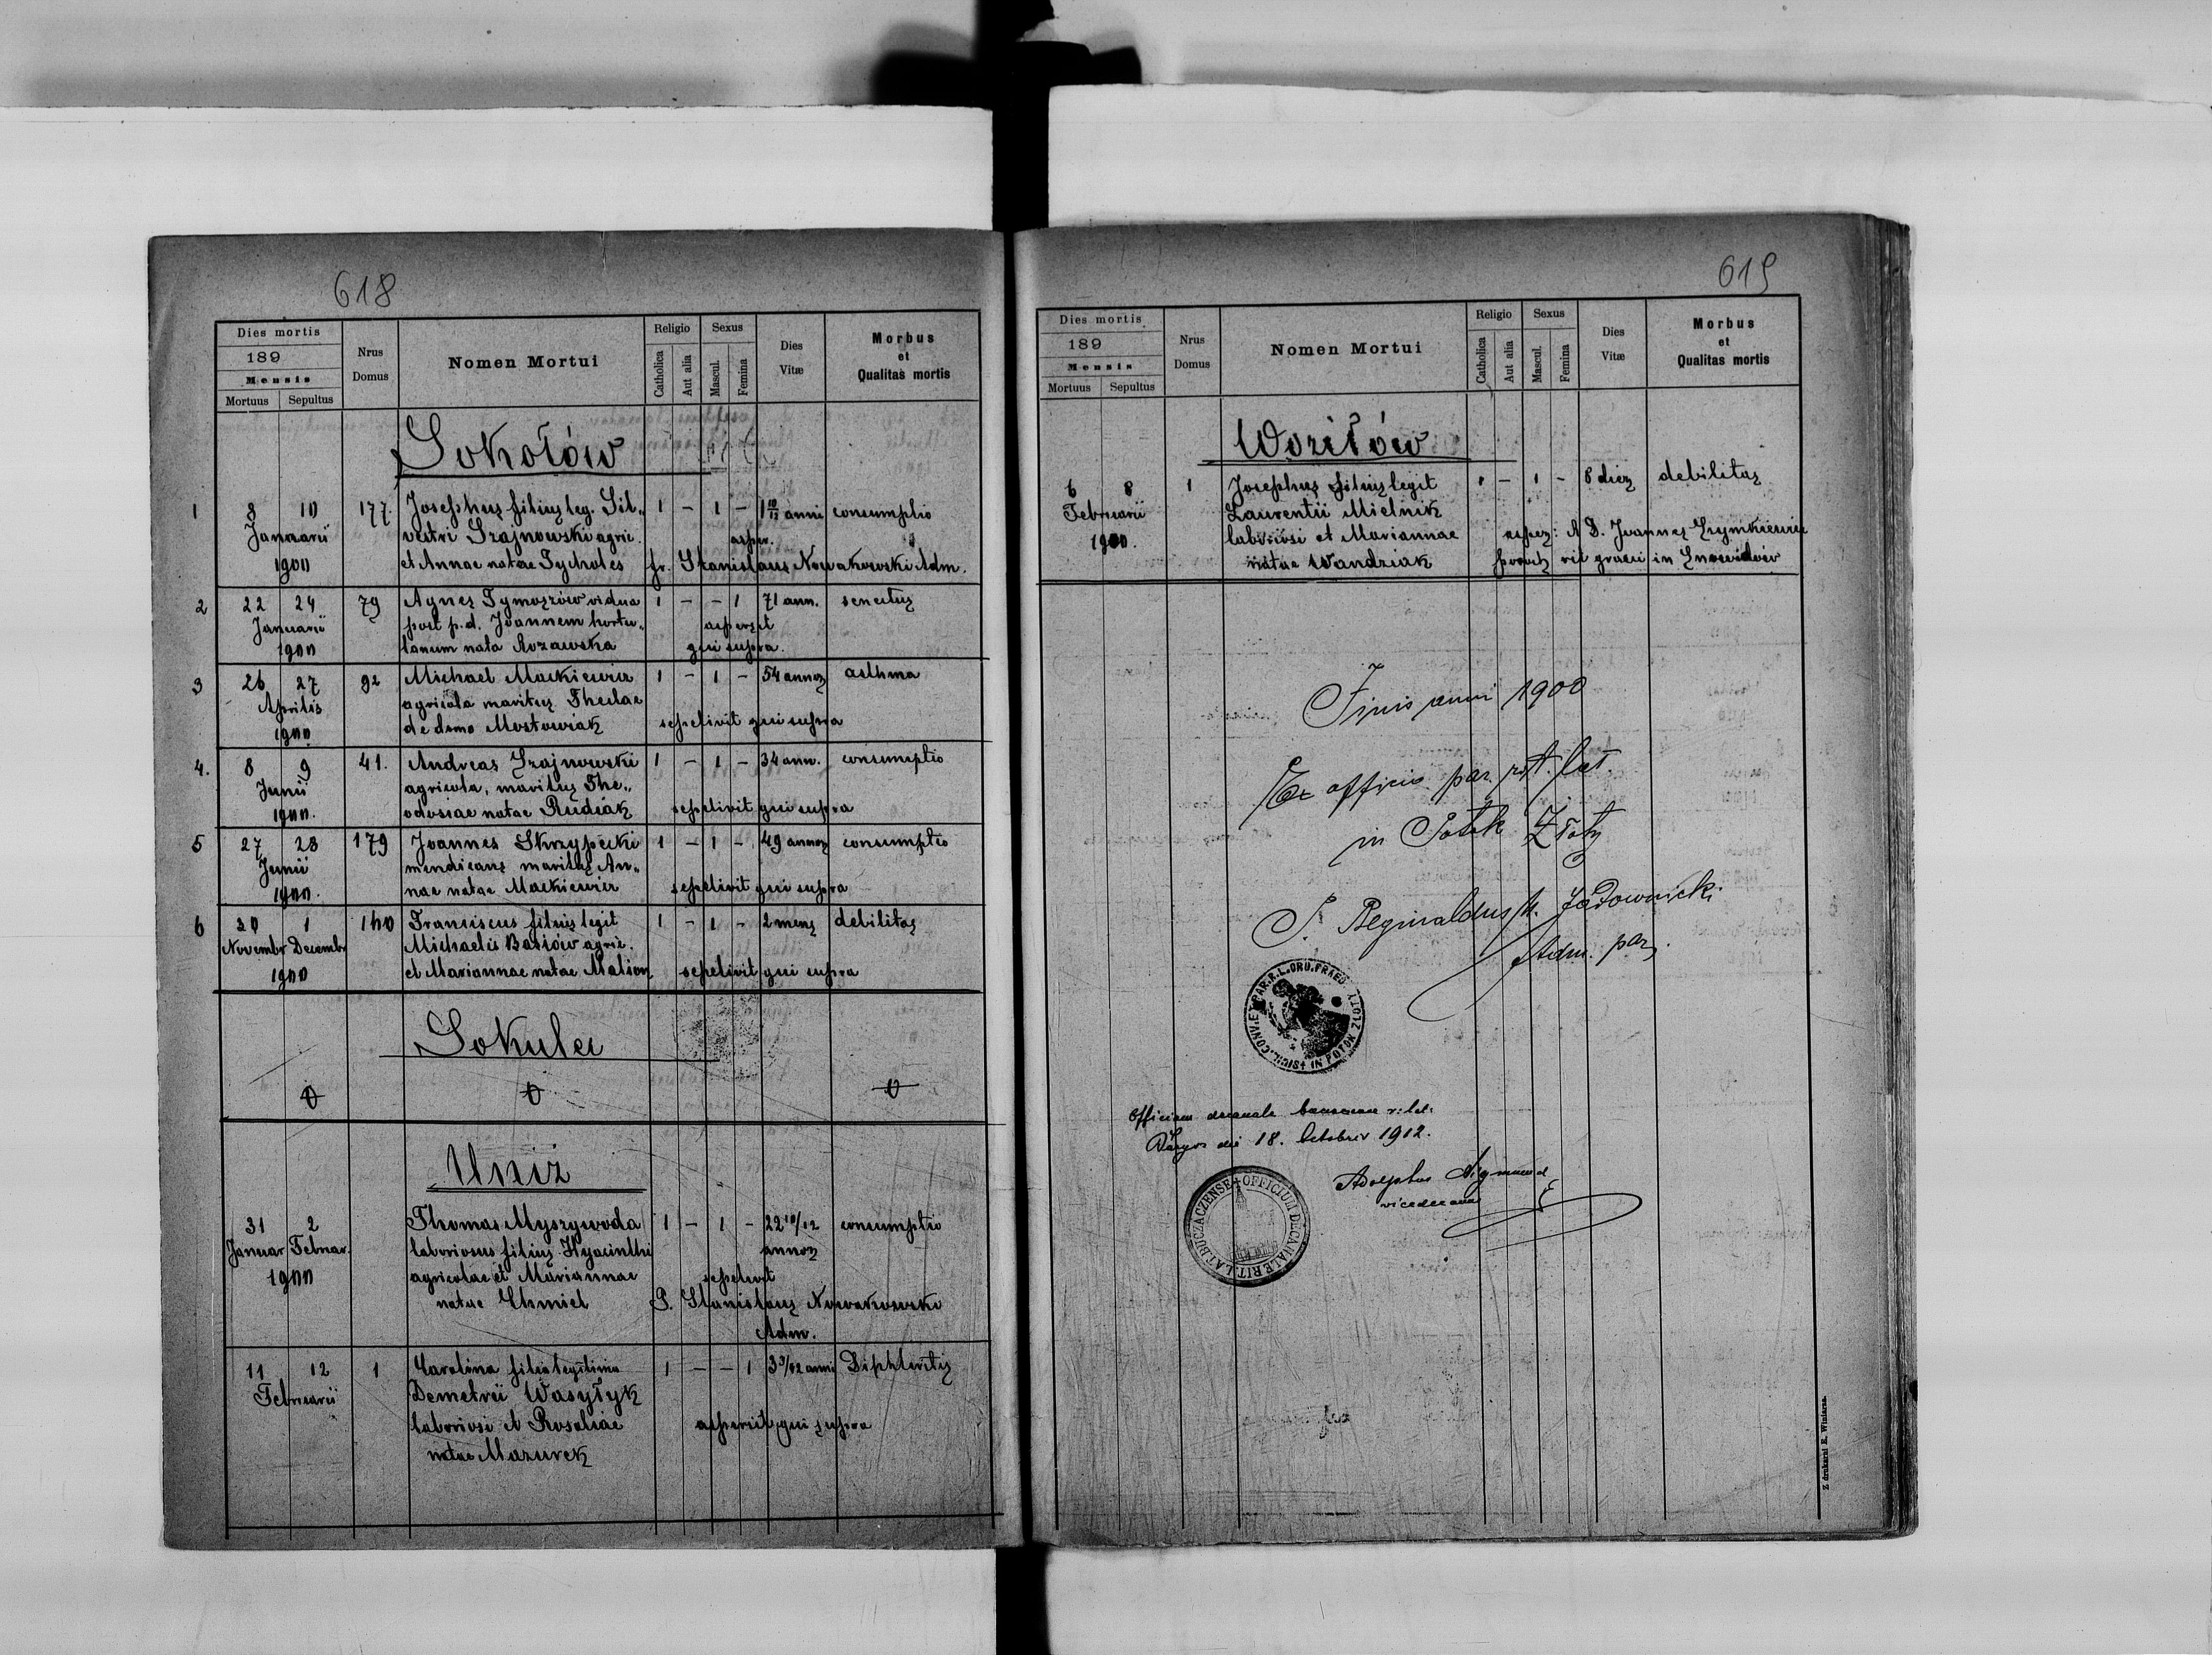 618
Dies mortis
189
Mensis
Mortuus Sepultus
Nrus
Domus
Nomen Mortui
Religio
Catholica
Aut alia
Sexus
Mascul.
Femina
Dies
Vitæ
Morbus
et
Qualitas mortis
Sokołów
1 8 10 177. Josephus filius leg. Sil„ 1 – 1 – 1 10/12 anni consumptio
Januarii vestri Szajnowski agric. asper.
1900 et Annae natae Tycholes fr. Stanislaus Nowakowski Adm.
2 22 24 79 Agnes Tymoszów vidua 1 – – 1 71 ann. senectus
Januarii post p.d. Joannem hortu„ aspersit
1900 lanum nata Rozawska qui supra.
3 26 27 92 Michael Mackiewicz 1 – 1 – 54 annos asthma
Aprilis agricola maritus Theclae
1900 de domo Mostowiak sepelivit qui supra
4. 8 9 41. Andreas Szajnowski 1 – 1 – 34 ann. consumptio
Junii agricola, maritus The„
1900. odosiae natae Rudiak sepelivit qui supra
5 27 28 179 Joannes Skrzypecki 1 – 1 – 49 annos consumptio
Junii mendicans maritus An„
1900. nae natae Mackiewicz sepelivit qui supra
6 30 1 140 Franciscus filius legit 1 – 1 – 2 mens debilitas
Novembr Decembr Michaelis Basiów agric.
1900 et Mariannae natae sepelivit qui supra
Sokulec
0 0 0
Uniż
31 2 Thomas Myszywoda 1 – 1 – 22 10/12 consumptio
Januar Februar. laboriosus filius Hyacinthi annos
1900 agricolae et Mariannae sepelivit
natae Chmiel P. Stanislaus Nowakowski
Adm.
11 12 1 Carolina filia legitima 1 – – 1 3 3/12 anni Diphteritis
Februarii Demetrii Wasyłyk
laboriosi et Rosaliae aspersit qui supra
natae Mazurek
619
Dies mortis
189
Mensis
Mortuus Sepultus
Nrus
Domus
Nomen Mortui
Religio
Catholica
Aut alia
Sexus
Mascul.
Femina
Dies
Vitæ
Morbus
et
Qualitas mortis
Woziłów
6 8 1 Josephus filius legit 1 – 1 – 8 dies debilitas
Februarii Laurentii Mielnik
1900. laboriosi et Mariannae asper: R D. Joannes Szymkiewicz
natae Wandziak rit graeci in Snowidów
Finis anni 1900
Ex officio par. rit. lat.
in Potok Złoty
P. Reginaldus M. Jadownicki
Adm. par.
CONV. ET PAR. R. L. ORD. PRAED. IN POTOK ZŁOTY
Officium decanale r. lat.
die 18. Octobris 1912.
Adolphus Sigmund
vicedecanus
OFFICIUM DECANALE RIT. LAT. BUCZACZENSE
Z drukarni E. Winiarza.